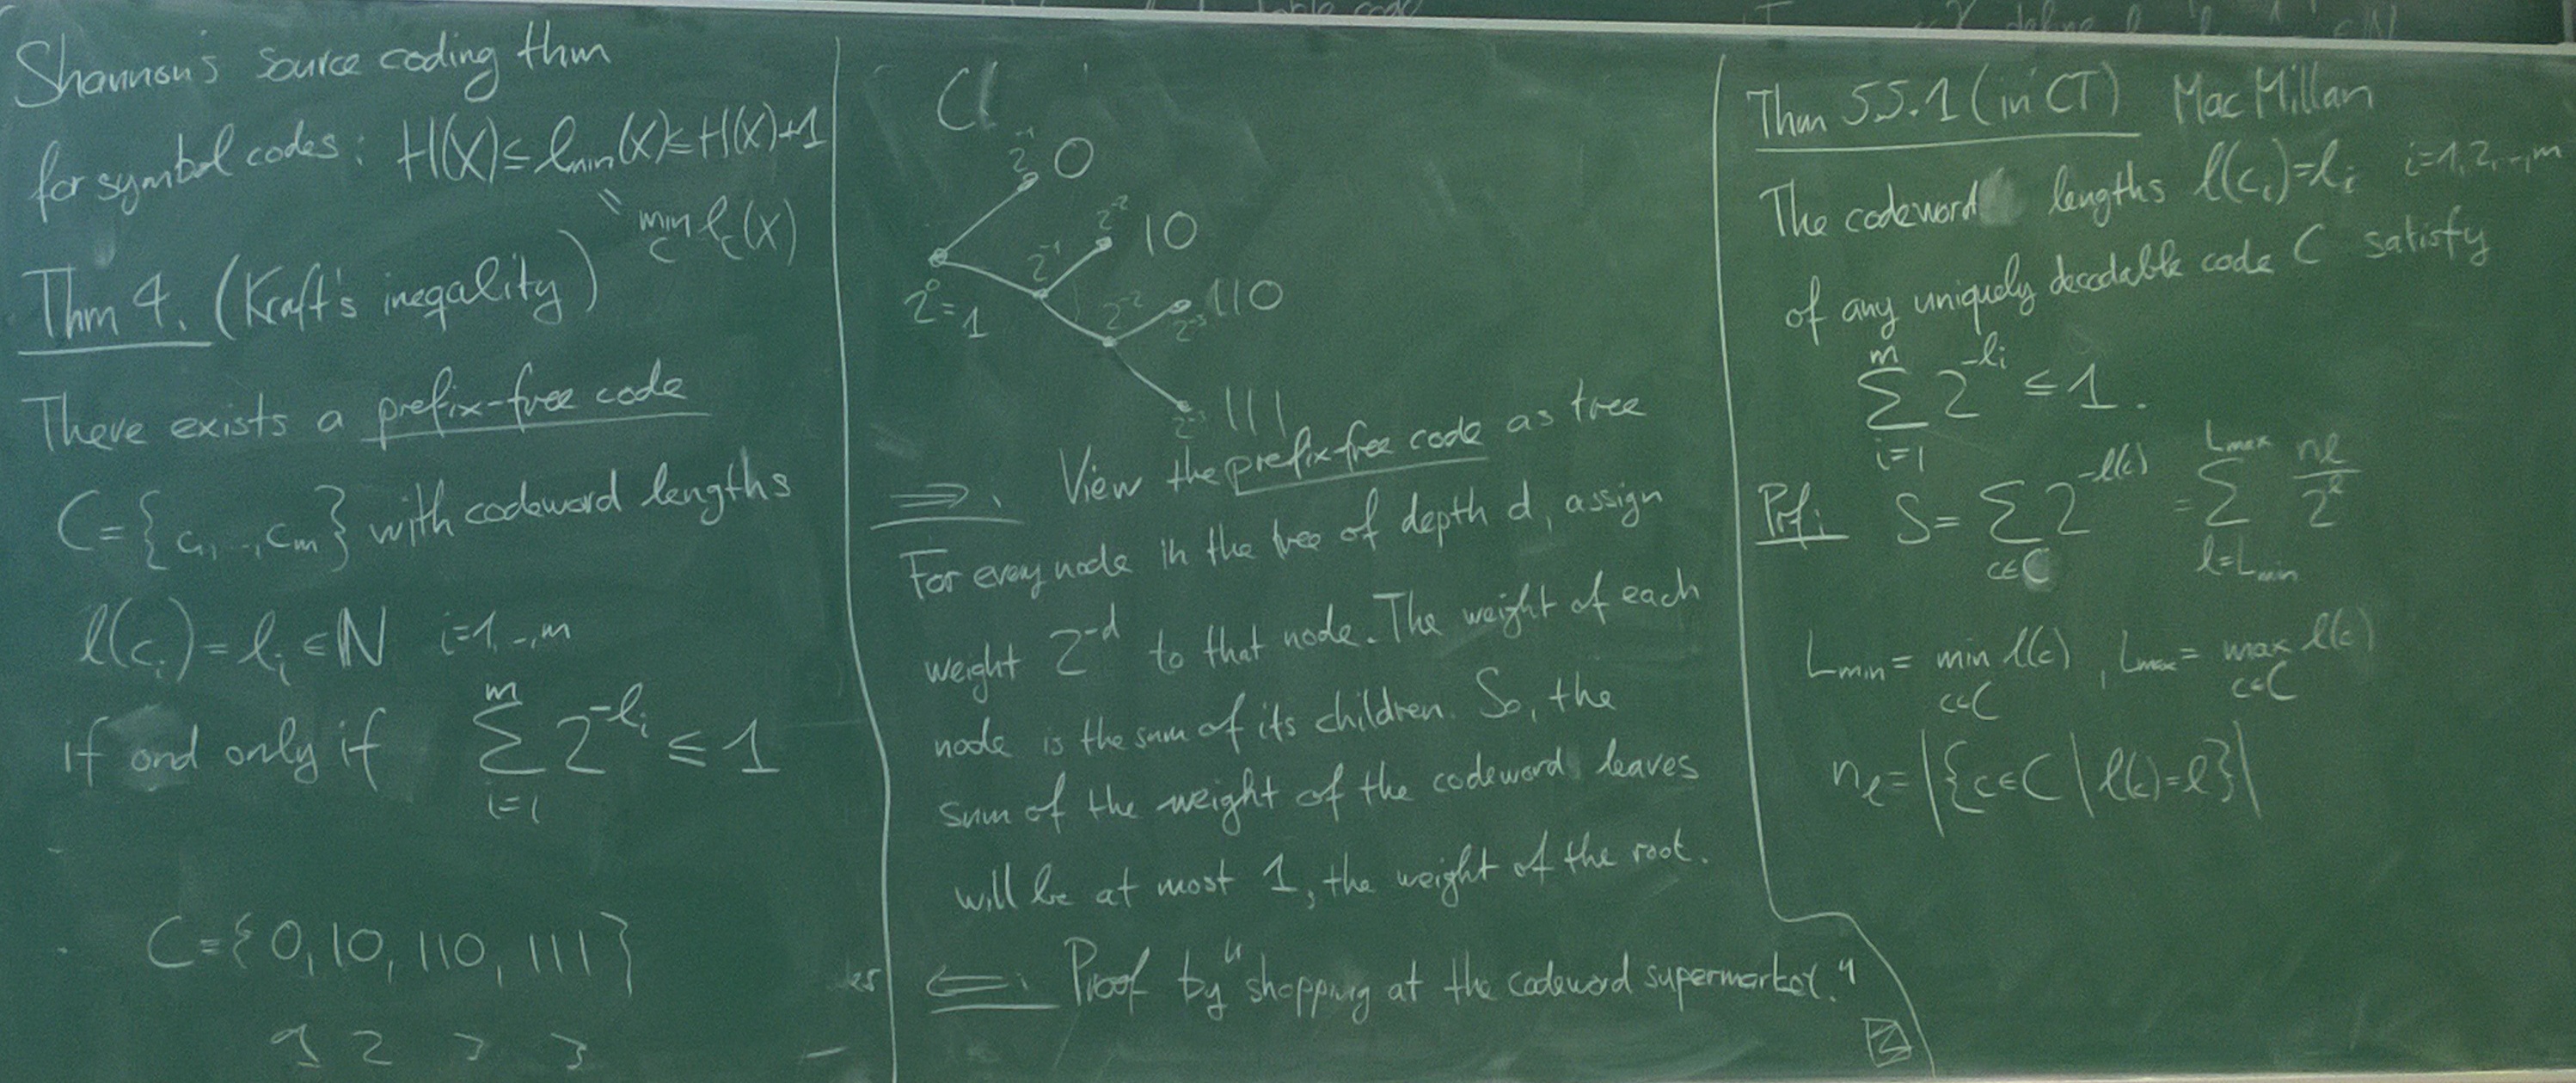 Shannon's source coding thm
for symbol codes: H(X) ≤ l_min(X) ≤ H(X)+1
" min_C l_C(X)
Thm 4. (Kraft's ineqality)
There exists a prefix-free code
C = {c_1, .., c_m} with codeword lengths
l(c_i) = l_i ∈ ℕ i=1,..,m
if and only if ∑_{i=1}^{m} 2^{-l_i} ≤ 1
C = {0, 10, 110, 111}
1 2 3 3
2^{-1} 0
2^{-2} 10
2^{-1}
2^0 = 1
2^{-2} 2^{-3} 110
2^{-3} 111
⇒: View the prefix-free code as tree
For every node in the tree of depth d, assign
weight 2^{-d} to that node. The weight of each
node is the sum of its children. So, the
sum of the weight of the codeword leaves
will be at most 1, the weight of the root.
⇐: Proof by "shopping at the codeword supermarket."
Thm 5.5.1 (in CT) MacMillan
The codeword lengths l(c_i) = l_i i=1,2,..,m
of any uniquely decodable code C satisfy
∑_{i=1}^{m} 2^{-l_i} ≤ 1.
Prf: S = ∑_{c∈C} 2^{-l(c)} = ∑_{l=L_min}^{L_max} n_l / 2^l
L_min = min_{c∈C} l(c), L_max = max_{c∈C} l(c)
n_l = |{c∈C | l(c)=l}|